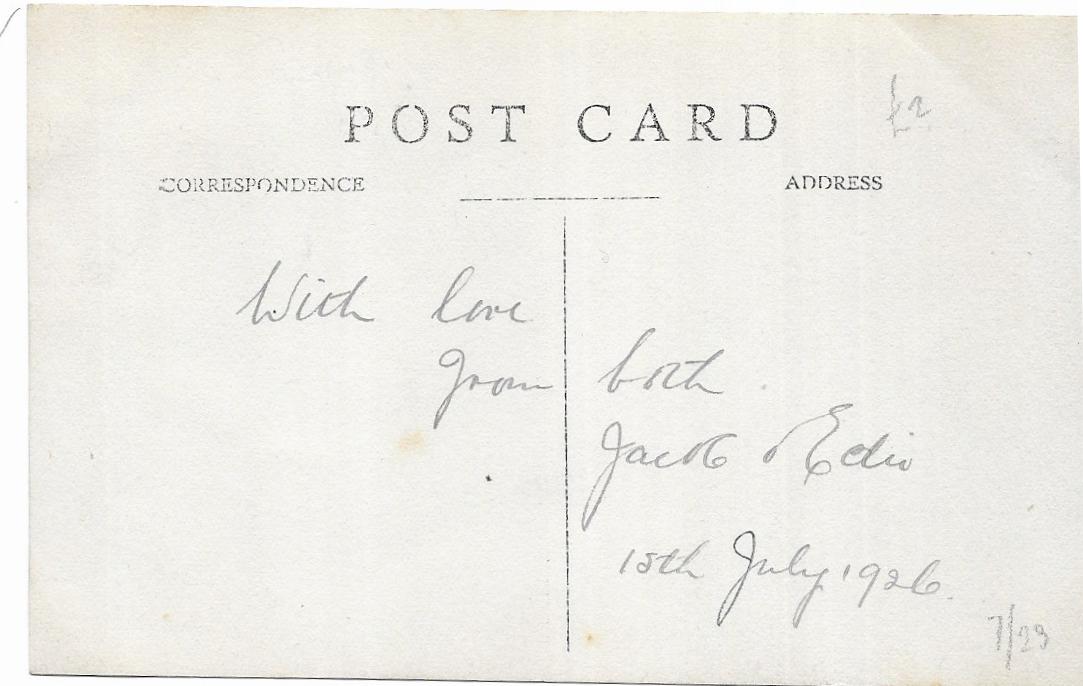 POST CARD
£2
CORRESPONDENCE
ADDRESS
With love
from both
Jacob & Edie
15th July 1926.
/23